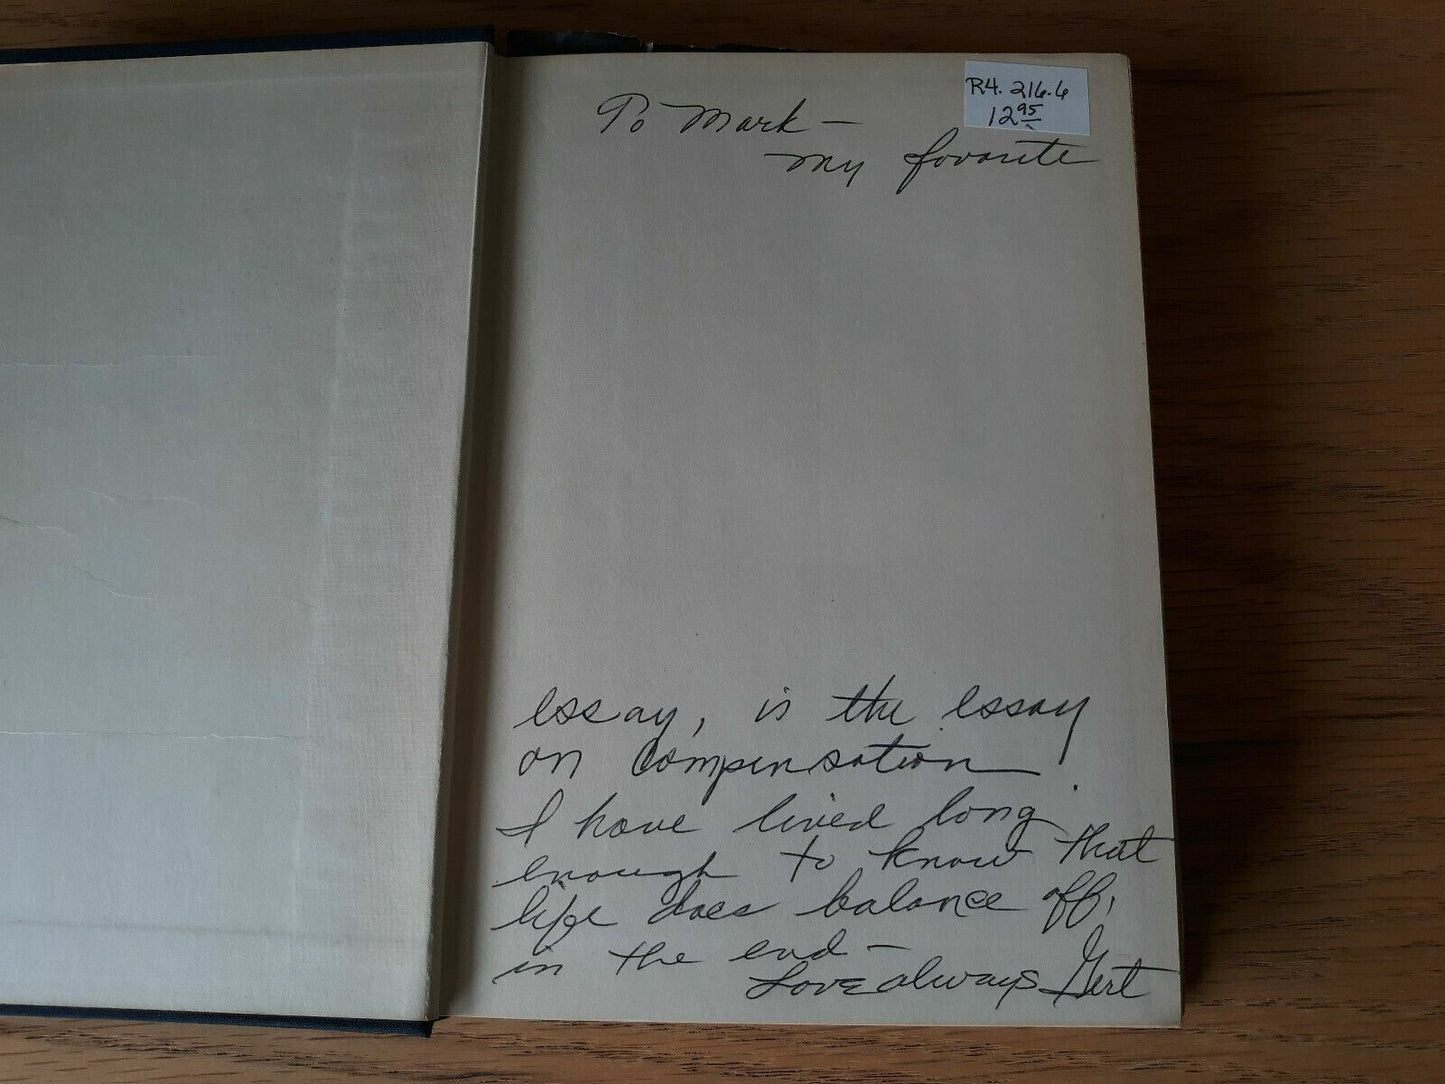 To Mark —
R4. 216.6
12 95
my favorite
essay, is the essay
on Compensation.
I have lived long
enough to know that
life does balance off,
in the end —
Love always Gert